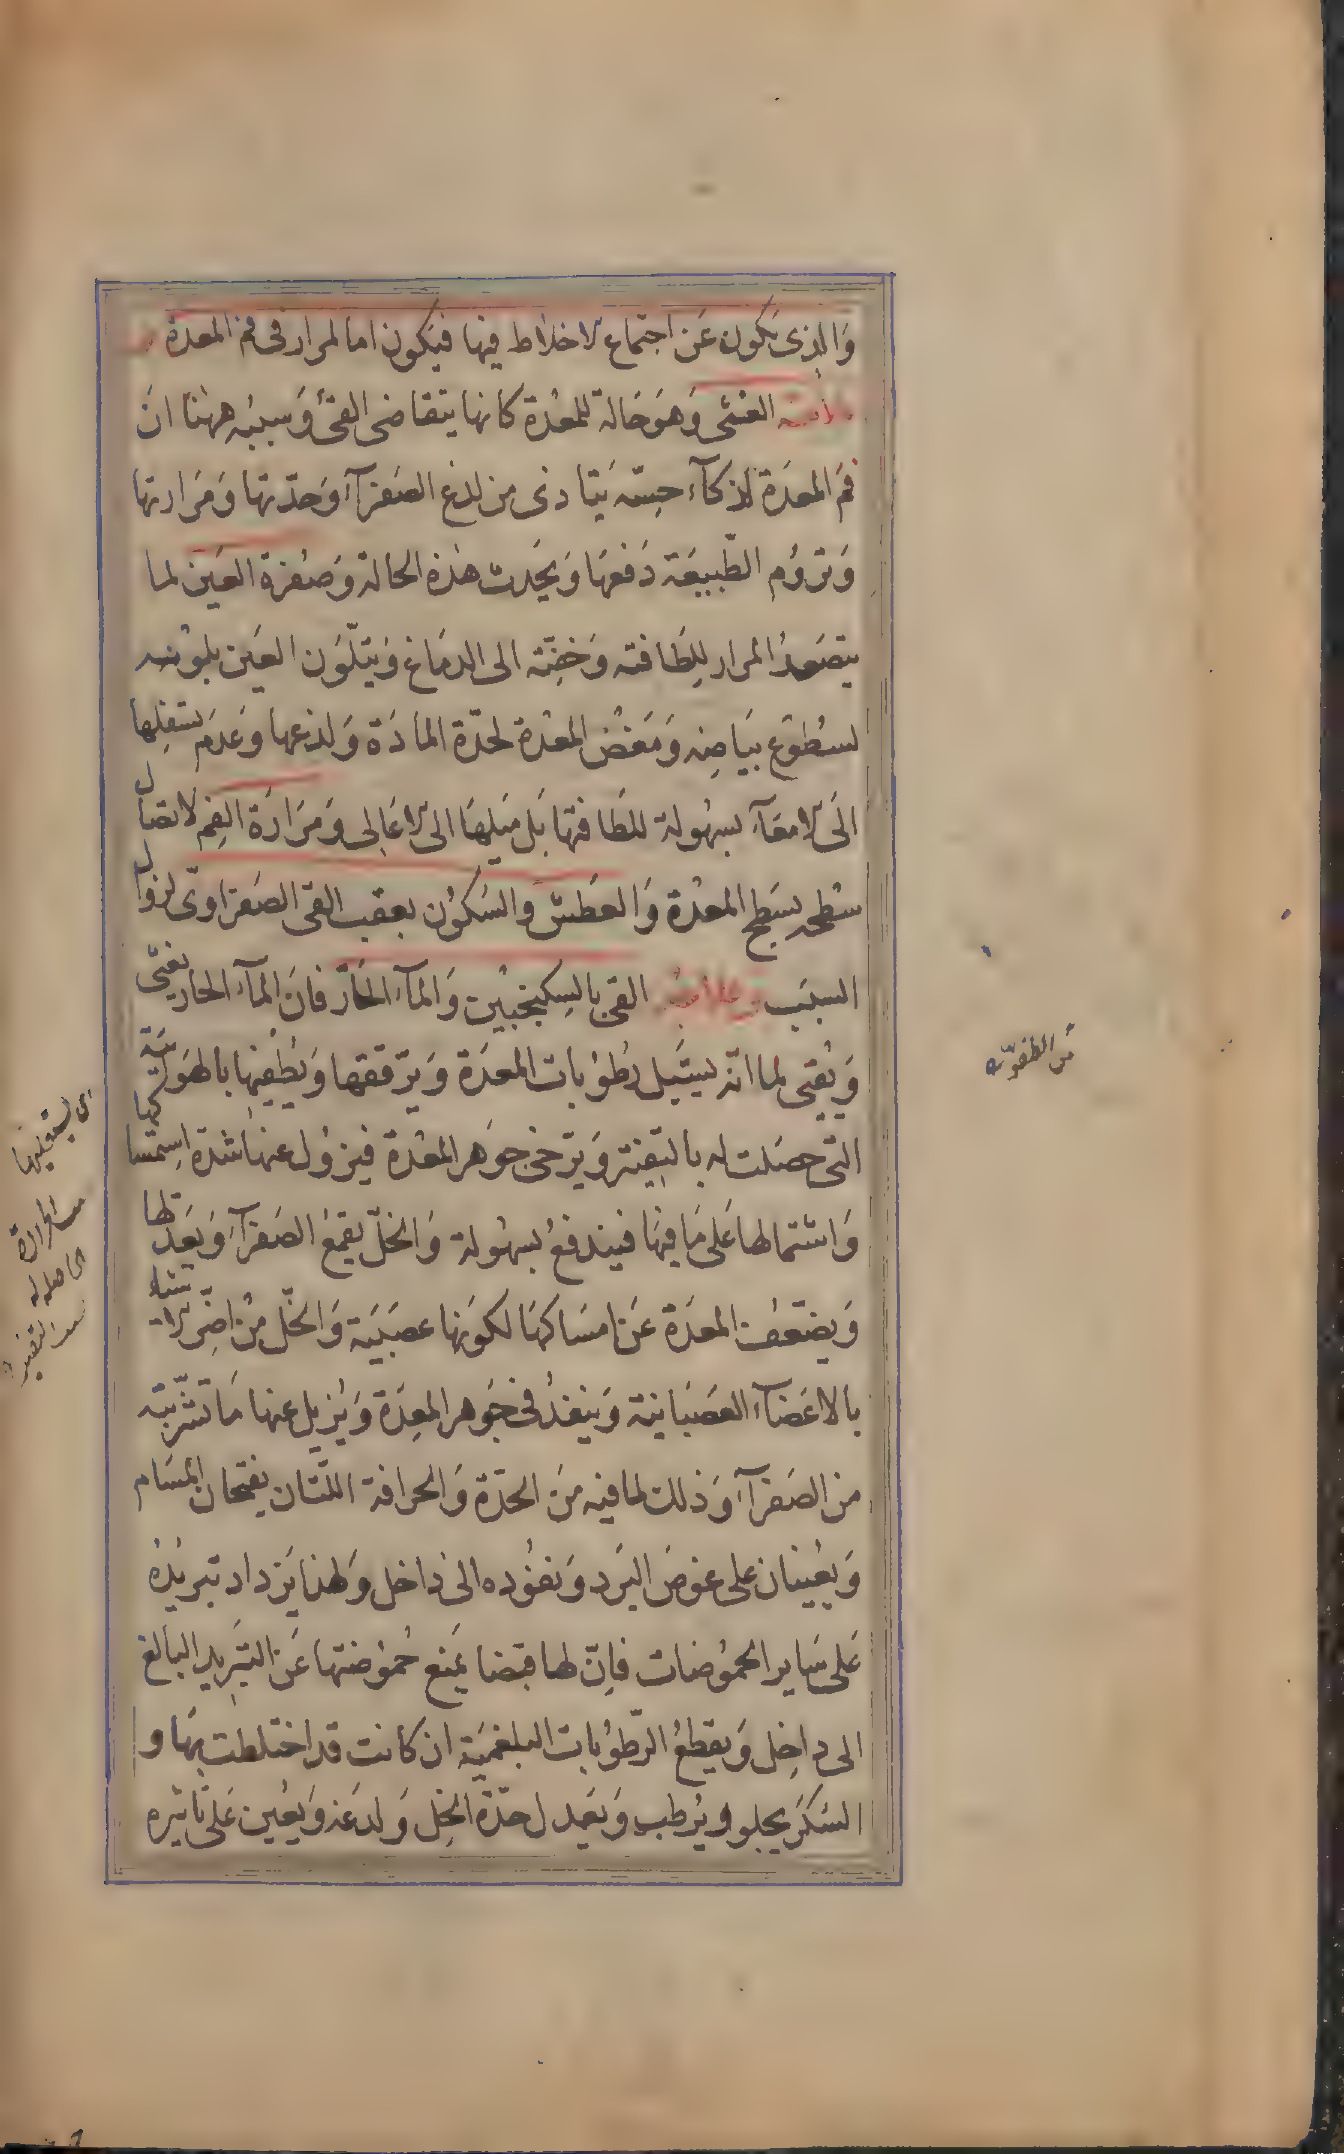 وَالذى يكون عَن اجتماع الاخلاط فيها فيَكون اما لمرار فى فم المعدة
علامته الغثى وَهوَ حَالة للمعدة كانها يتقاضى القئ وَسببُه ههُنا انَ
فم المعدَة لذكآء حِسّه يَتاذى من لذع الصَفرآء وَحدّتها وَمَرارتها
وَترُوم الطّبيعَة دَفعهَا وَيحَدث هذه الحالة وَصُفرة العَين لما
يتصَعدُ المرار لِلطَافته وَخفته الى الدمَاغ وَيتلَّون العَين بلونه
لسُطوع بيَاضِه وَمَغصُ المعْدة لحدّة المَادَة وَلذعها وَعَدم تسفلها
الَى الامعَآء بسهُولة للطَافتها بَل مَيلهَا الى الاعَالى وَمَرارَة الفِم لاتصال
سُطحه بسَطح المعْدة وَالعطش وَالسَكوُن بعقب القى الصَفرَاوىّ لزوال
السبَب وعلاجه القى بالسِكنجبُين وَالمآء الحَارّ فانَ المآء الحار يغثى
وَيُقيى لما انّه يسَيّل رُطوُبات المعدَة وَيرّققها وَيطُفيها بالهوَائية
التى حصَلت له بالتسخينة وَيرَخى جوَهر المعْدة فيزوُل عنها شدة استمساكها
وَاشتمالها عَلى مَا فيهَا فيندفعُ بسهُولة وَالخلّ يقمَعُ الصَفرآءَ وَيعَدلها
وَيضعّف المعدَة عَن امسَاكهَا لكوَنها عصَبَية وَالخّل مِنْ اضّر الاشياء
بالاعَضآء العَصَبَانية وَينفدُ فى جوَهر المعِدَة وَيُزيل عنها مَا تشّربته
من الصَفرآء وَذلك لما فيه مَن الحدّة وَالحرافة اللّتان يفتحان المسَام
وَيعُينان على غوصَ البَرد وَنفوُذه الى دَاخل وَلهذا يَزداد تبريدُه
عَلى سَاير الحموُضات فاِنّ لها قبَضا يمَنع حُموُضتها عَن التبَرِيد البَالغ
الى داخِل وَيقطعُ الرّطوُبات البلغميَة ان كانت قد اختلطت بهَا و
السَكرَ يجلو وَيُرطب وَيعَدل حدّة الخِل وَلدعَه وَيعُين عَلى تاثيره